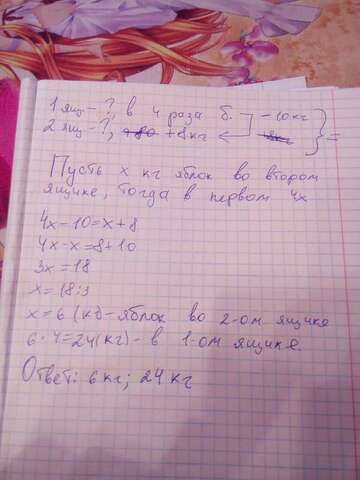 1 ящ - ? в 4 раза б. - 10 кг
2 ящ - ?, +8 кг =
Пусть x кг яблок во втором
ящике, тогда в первом 4x
4x-10=x+8
4x-x=8+10
3x=18
x=18:3
x=6 (кг)-яблок во 2-ом ящике
6·4=24(кг)-в 1-ом ящике.
Ответ: 6 кг; 24 кг